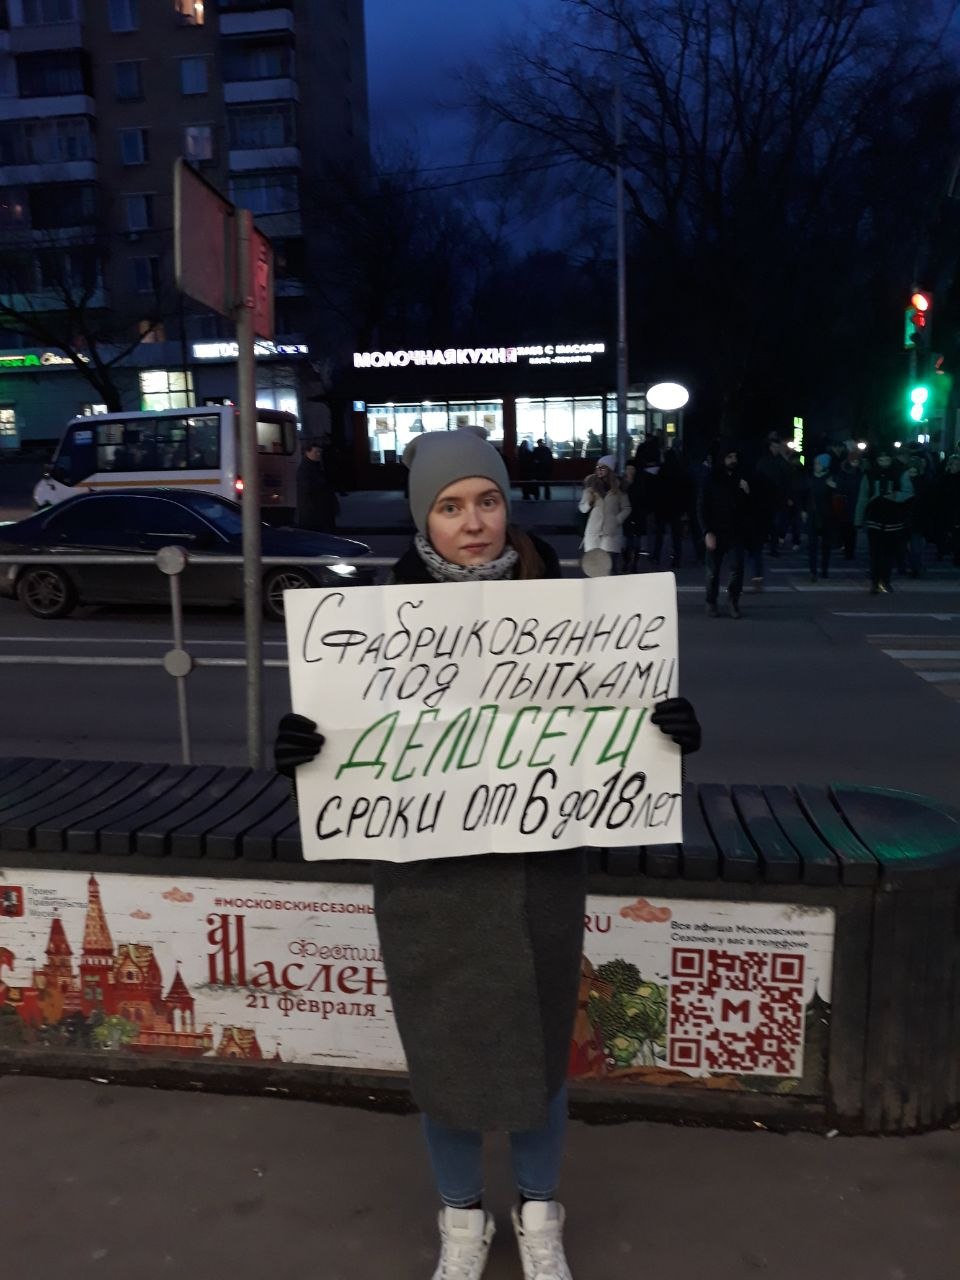 МОЛОЧНАЯ КУХНЯ
Сфабрикованное
под пытками
ДЕЛО СЕТИ
сроки от 6 до 18 лет
Проект
Правительства
Москвы
#МОСКОВСКИЕСЕЗОНЫ
Фести
Маслен
21 февраля -
RU
Вся афиша Московских
Сезонов у вас в телефоне
М